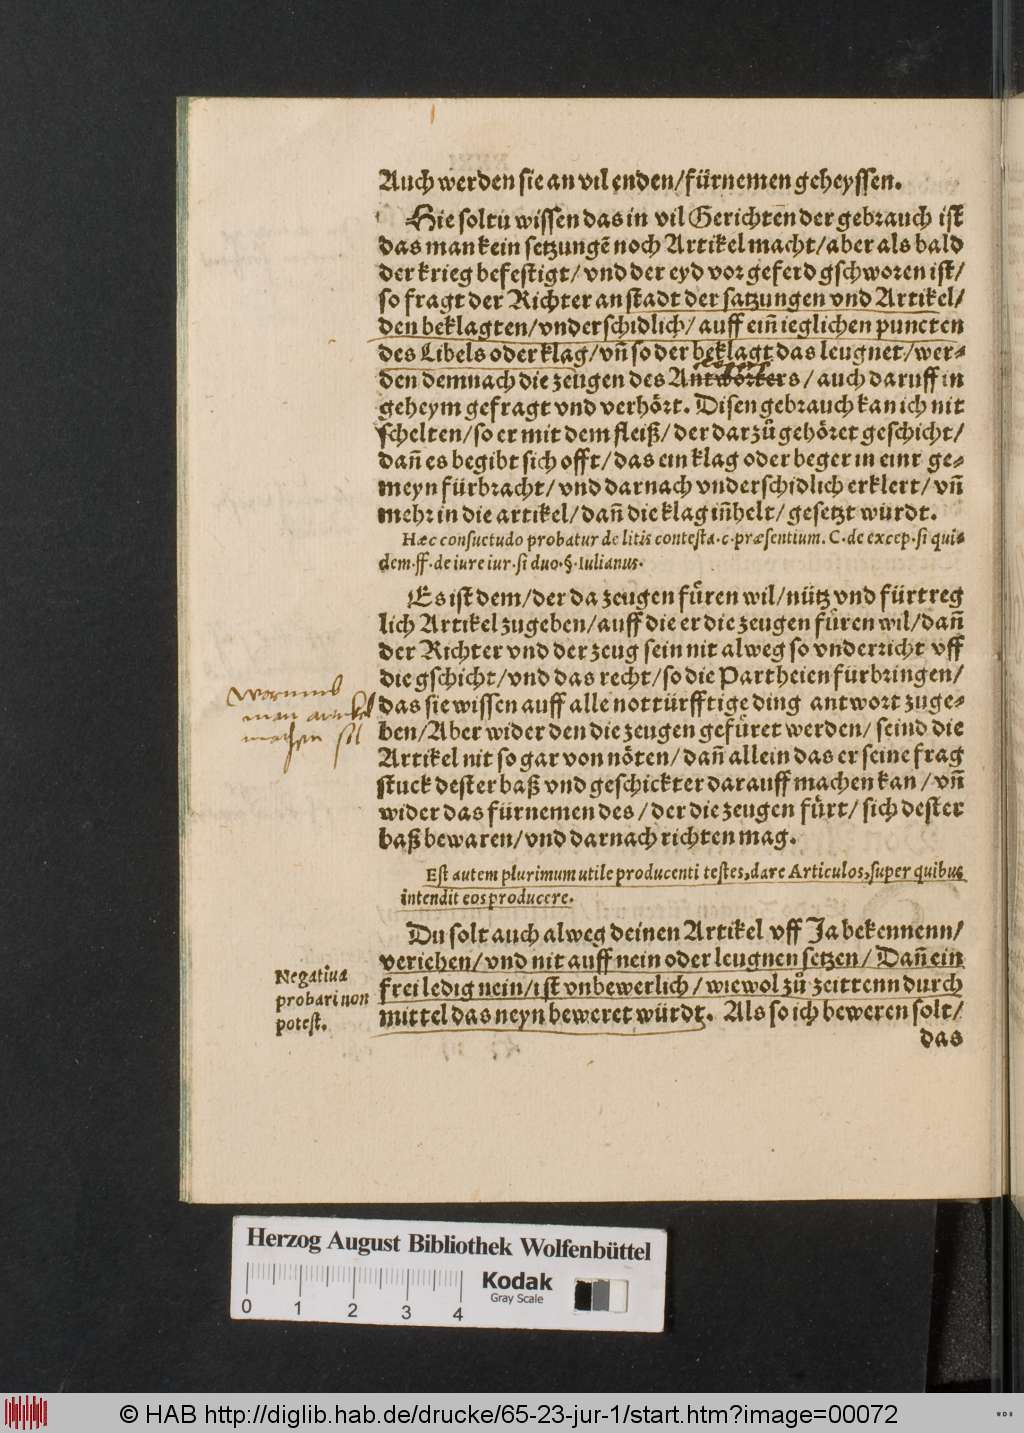 Auch werden sie an vil enden/fürnemen geheyssen.
Hie soltu wissen das in vil Gerichten der gebrauch ist
das man kein setzungē noch Artikel macht/aber als bald
der krieg befestigt/vnd der eyd vor geferd gschworen ist/
so fragt der Richter an stadt der satzungen vnd Artikel/
den beklagten/vnderschidlich/auff ein̄ ieglichen puncten
des Libels oder klag/vn̄ so der beklagt das leugnet/wer-
den demnach die zeugen des Antworters/auch daruff in
geheym gefragt vnd verhört. Disen gebrauch kan ich nit
schelten/so er mit dem fleiß/der darzů gehöret geschicht/
dan̄ es begibt sich offt/das ein klag oder beger in einr ge-
meyn fürbracht/vnd darnach vnderschidlich erklert/vn̄
mehr in die artikel/dan̄ die klag in̄helt/gesetzt würdt.
Hæc consuetudo probatur de litis contesta.c.præsentium. C.de excep.si qui-
dem.ff.de iure iur.si duo.§.Iulianus.
Es ist dem/der da zeugen füren wil/nütz vnd fürtreg
lich Artikel zugeben/auff die er die zeugen füren wil/dan̄
der Richter vnd der zeug sein nit alweg so vnderricht vff
die gschicht/vnd das recht/so die Partheien fürbringen/
das sie wissen auff alle nottürfftige ding antwort zuge-
ben/Aber wider den die zeugen gefüret werden/seind die
Artikel nit so gar von nöten/dan̄ allein das er seine frag
stuck dester baß vnd geschickter darauff machen kan/vn̄
wider das fürnemen des/der die zeugen fürt/sich dester
baß bewaren/vnd darnach richten mag.
warumb
man artikel
machen sol
Est autem plurimum utile producenti testes,dare Articulos,super quibus
intendit eos producere.
Du solt auch alweg deinen Artikel vff Ja bekennenn/
veriehen/vnd nit auff nein oder leugnen setzen/Dan̄ ein
frei ledig nein/ist vnbewerlich/wiewol zů zeittenn durch
mittel das neyn beweret würdt. Als so ich beweren solt/
das
Negatiua
probari non
potest.
Herzog August Bibliothek Wolfenbüttel
0 1 2 3 4
Kodak
Gray Scale
© HAB http://diglib.hab.de/drucke/65-23-jur-1/start.htm?image=00072